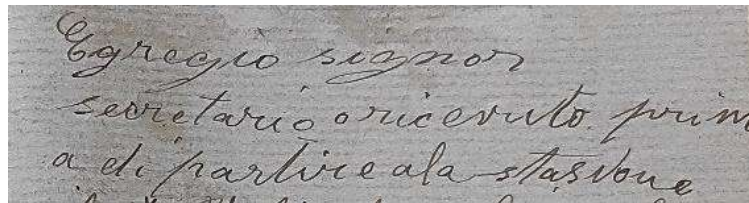 Egregio signor
secretario o ricevuto prim
a di partire ala stasione